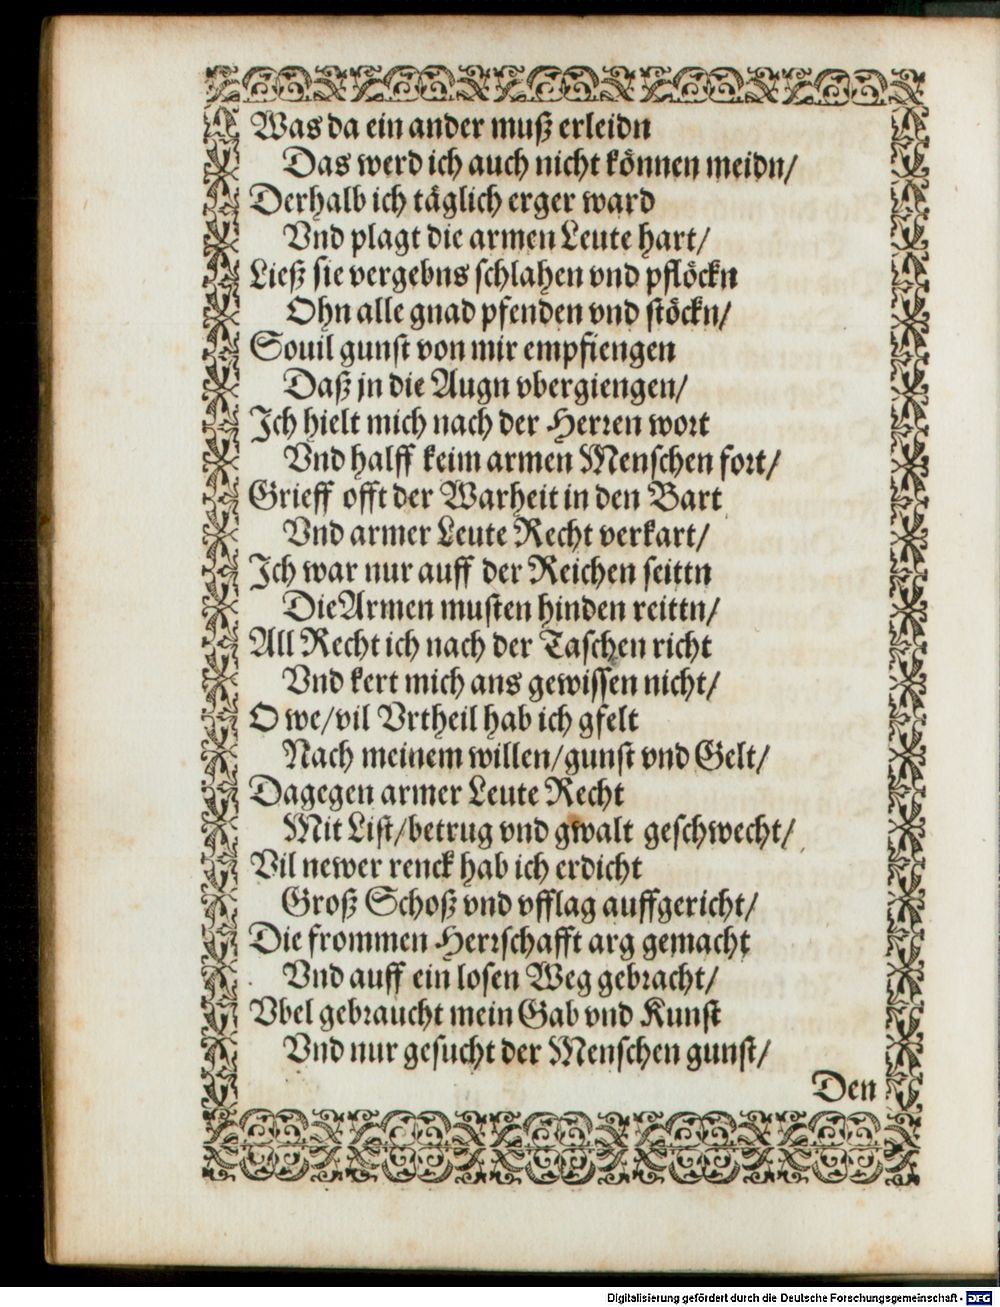 Was da ein ander muß erleidn
Das werd ich auch nicht können meidn/
Derhalb ich täglich erger ward
Vnd plagt die armen Leute hart/
Ließ sie vergebns schlahen vnd pflöckn
Ohn alle gnad pfenden vnd stöckn/
Souil gunst von mir empfiengen
Daß jn die Augn vbergiengen/
Ich hielt mich nach der Herren wort
Vnd halff keim armen Menschen fort/
Grieff offt der Warheit in den Bart
Vnd armer Leute Recht verkart/
Ich war nur auff der Reichen seittn
Die Armen musten hinden reittn/
All Recht ich nach der Taschen richt
Vnd kert mich ans gewissen nicht/
O we/vil Vrtheil hab ich gfelt
Nach meinem willen/gunst vnd Gelt/
Dagegen armer Leute Recht
Mit List/betrug vnd gwalt geschwecht/
Vil newer renck hab ich erdicht
Groß Schoß vnd vfflag auffgericht/
Die frommen Herrschafft arg gemacht
Vnd auff ein losen Weg gebracht/
Vbel gebraucht mein Gab vnd Kunst
Vnd nur gesucht der Menschen gunst/
Den
Digitalisierung gefördert durch die Deutsche Forschungsgemeinschaft - DFG